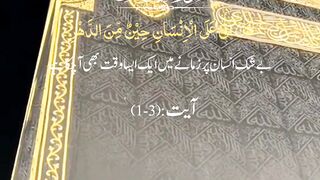 عَلَى الْاِنْسَانِ حِيْنٌ مِّنَ الدَّهْ
بے شک انسان پر زمانے میں ایک ایسا وقت بھی آیا
آیت:(3-1)